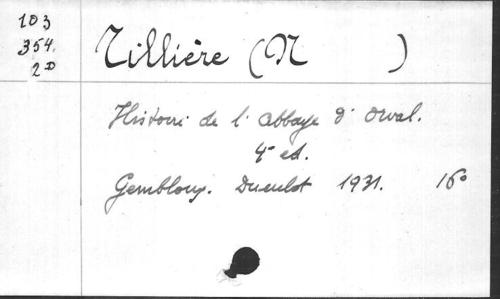 103
354.
2D
Tillière (N )
Histoire de l'abbaye d'Orval.
4e ed.
Gembloux. Duculot 1931. 16°